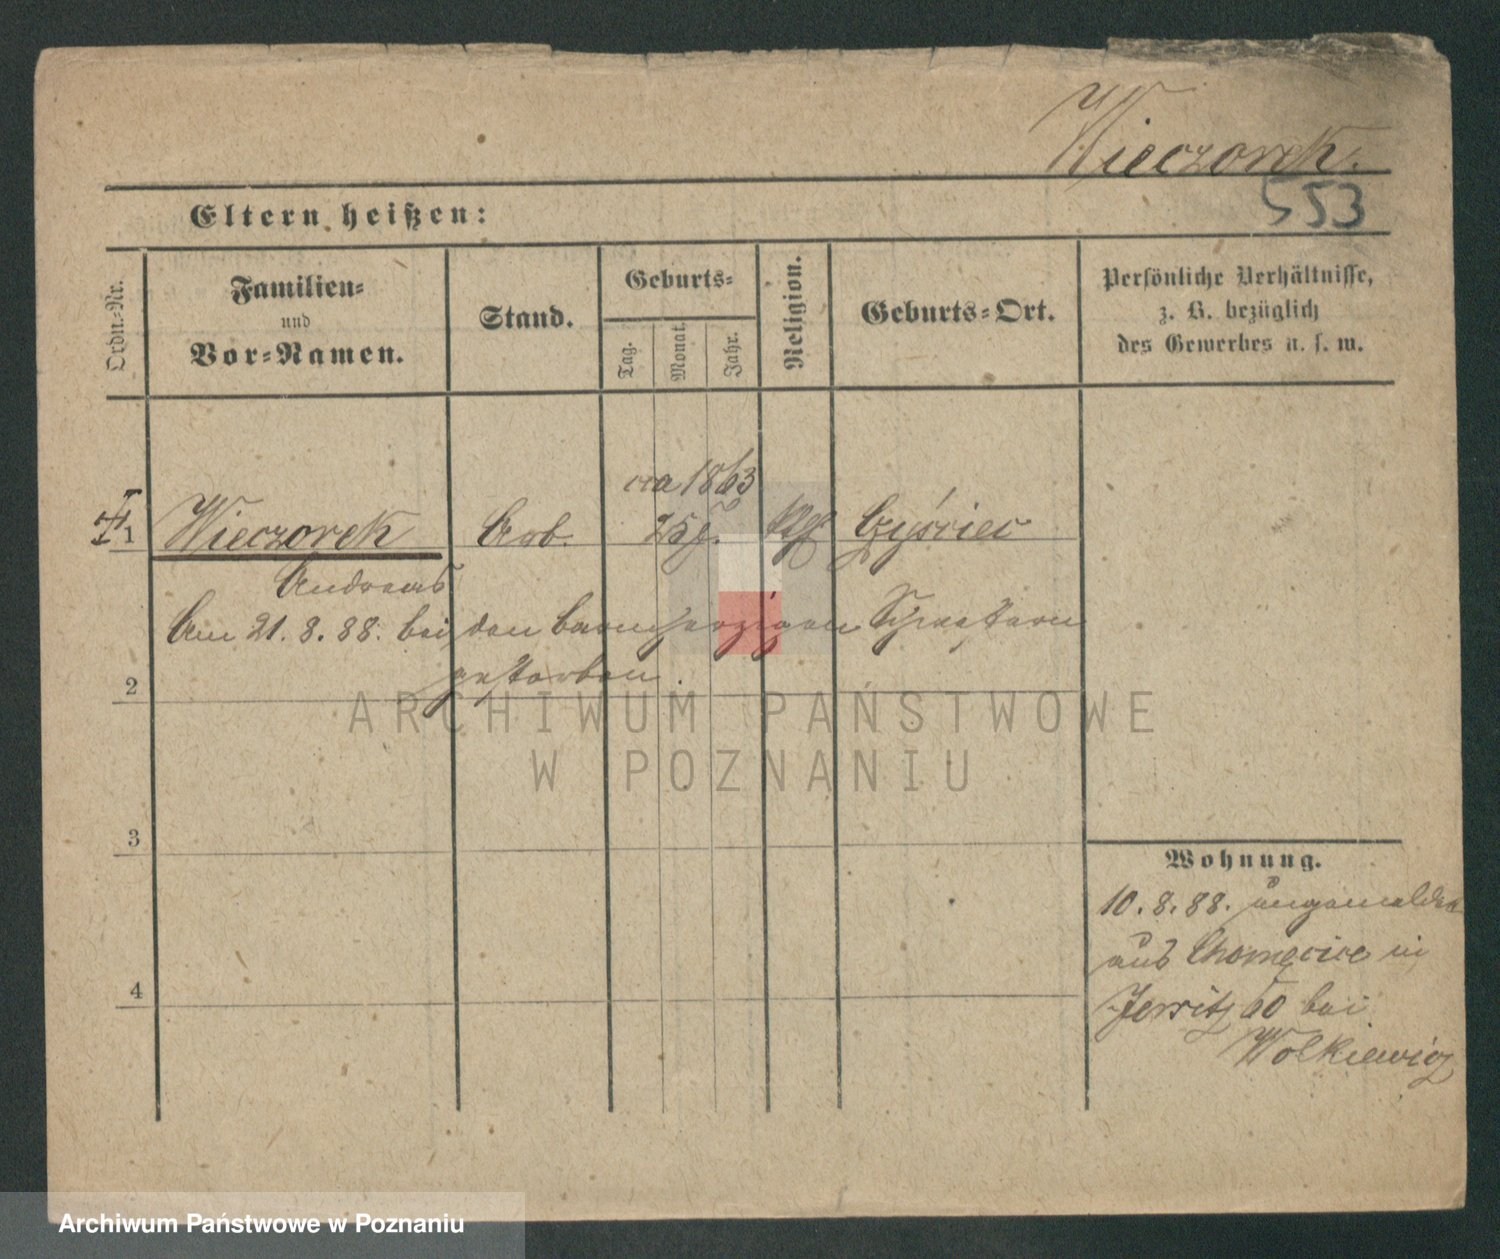 Wieczorek.
553
Eltern heißen:
Ordn.-Nr.
Familien-
und
Vor-Namen.
Stand.
Geburts-
Tag.
Monat.
Jahr.
Religion.
Geburts-Ort.
Persönliche Verhältnisse,
z. B. bezüglich
des Gewerbes u. s. w.
1
Wieczorek
Andreas
Arb.
ca 1863
25 J.
kath
Am 21. 8. 88. bei den barmherzigen Schwestern
gestorben.
2
3
4
Wohnung.
10. 8. 88. angemeldet
aus Chomęcice in
Jersitz 60 bei
Wolkiewicz
ARCHIWUM PAŃSTWOWE
W POZNANIU
Archiwum Państwowe w Poznaniu